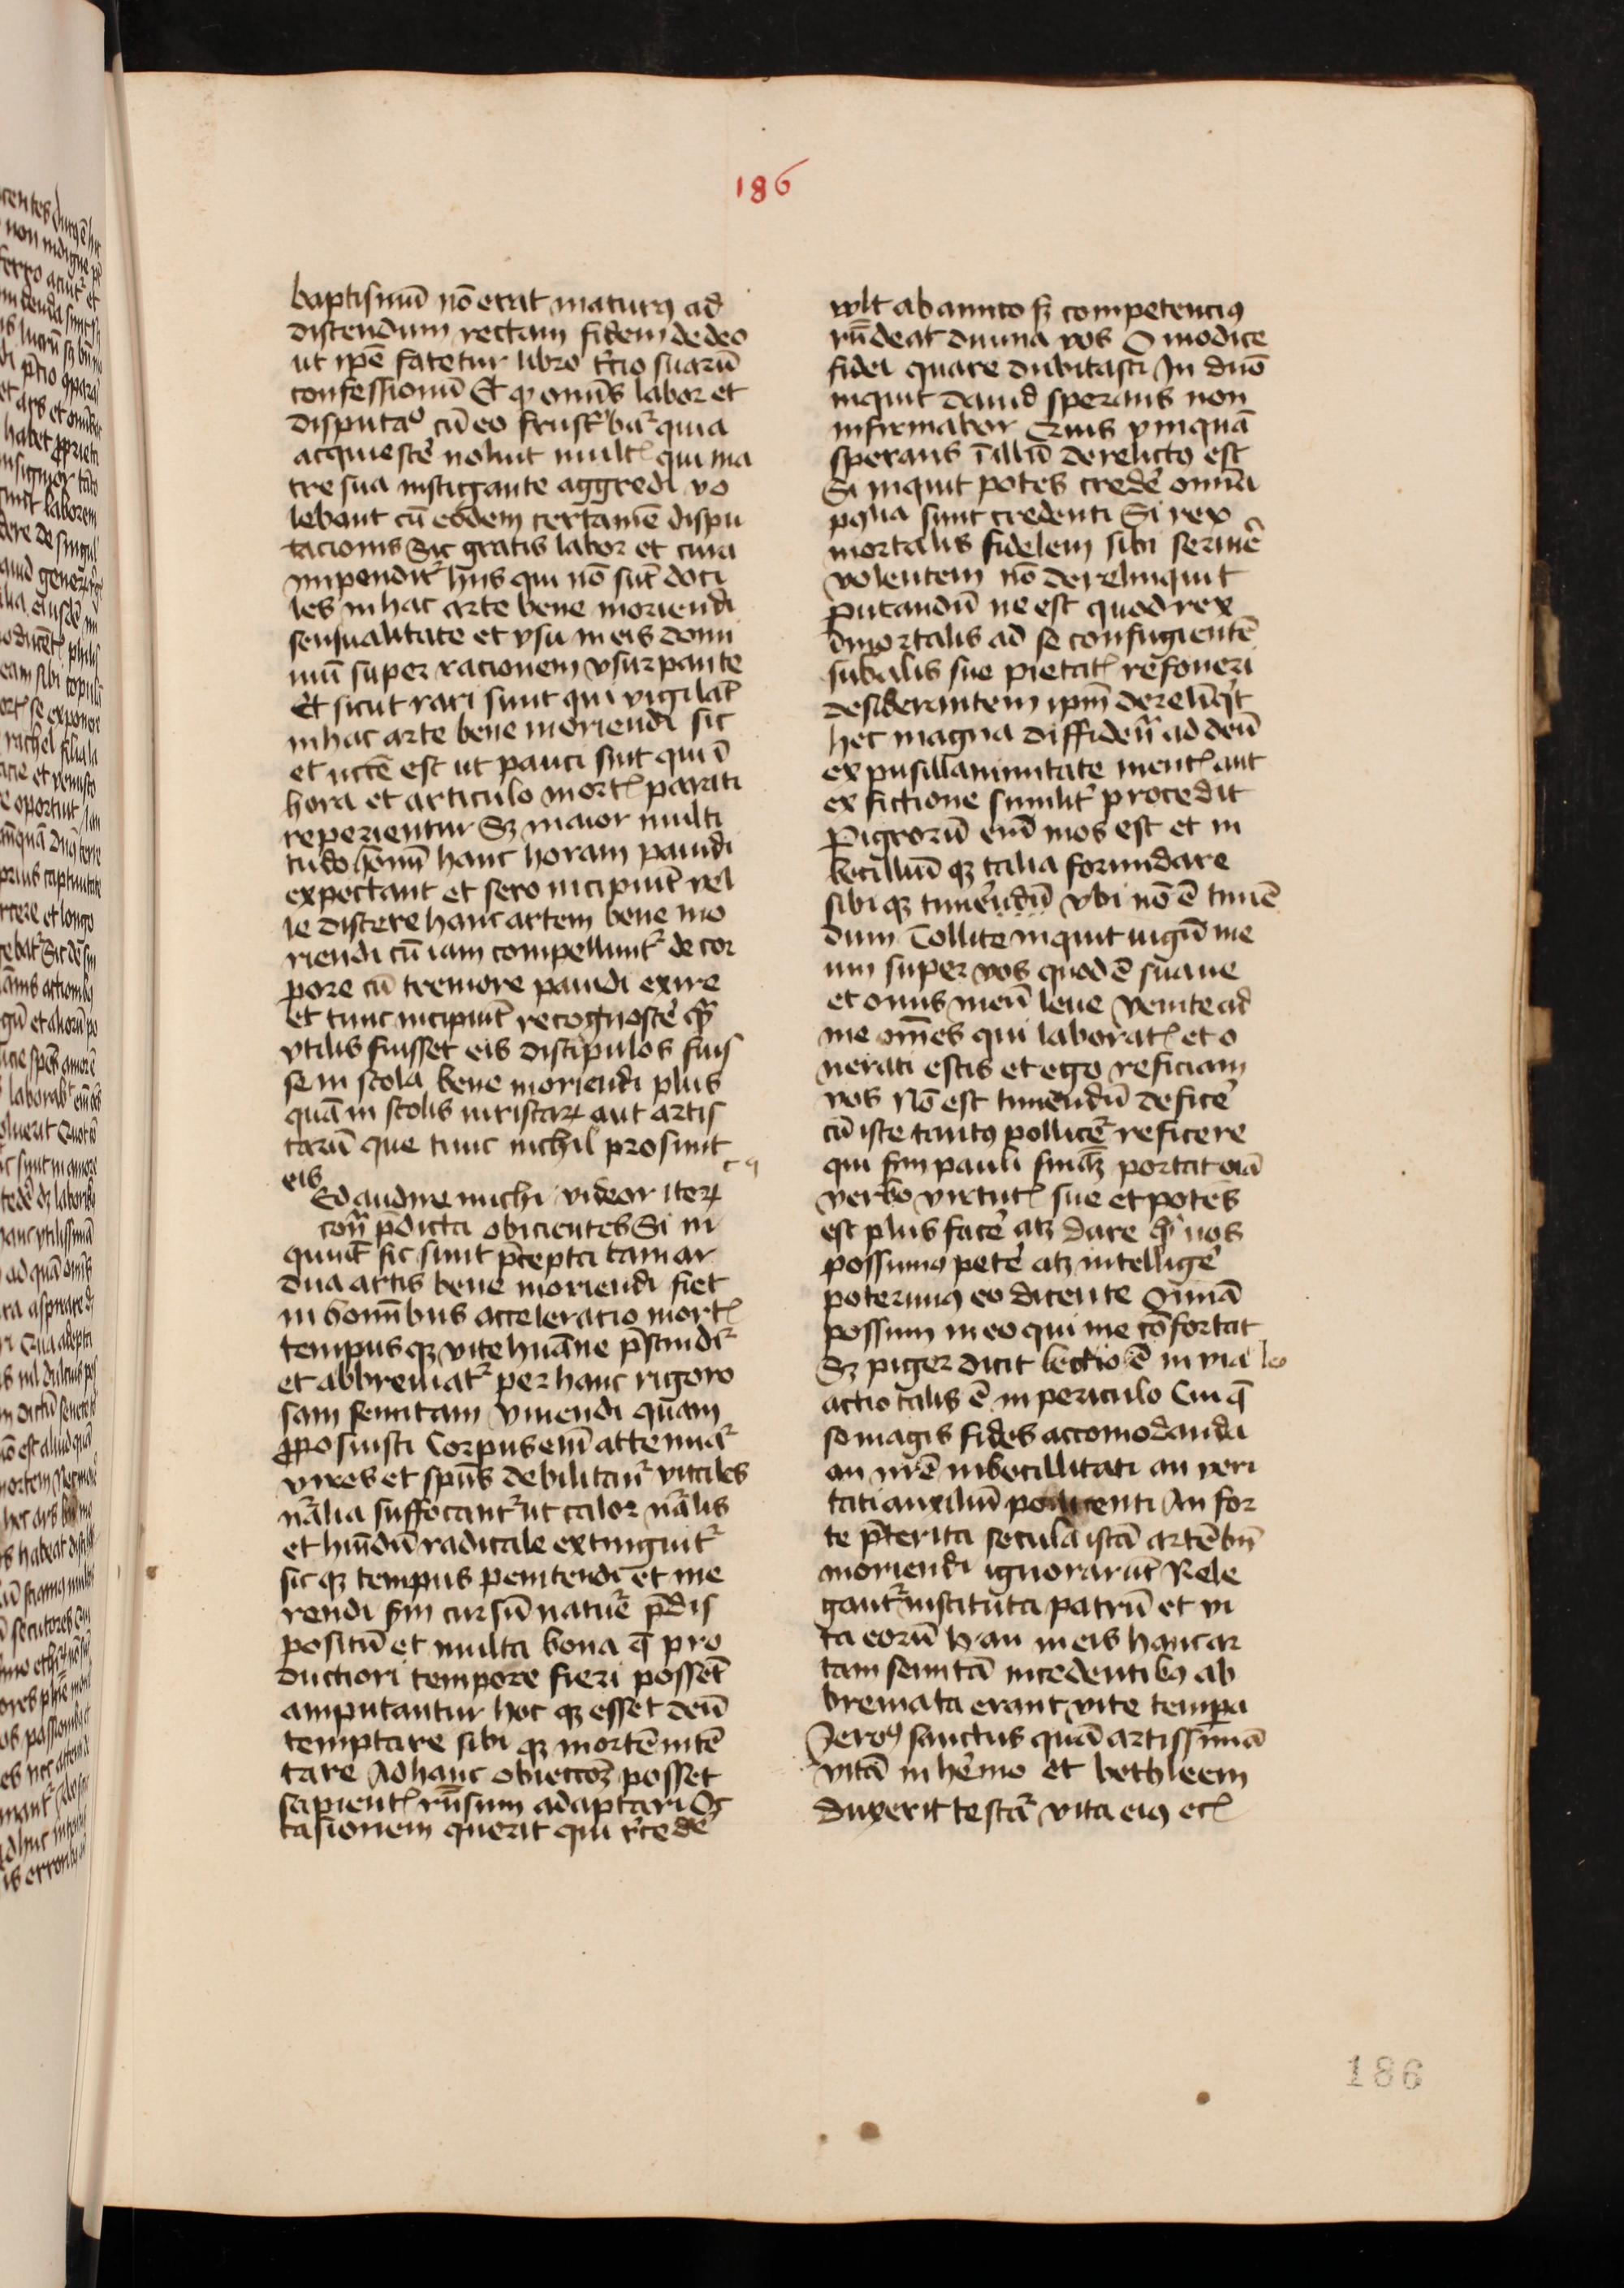 186
baptismū nō erat maturꝯ ad
discendum rectam fidem de deo
ut ipē fatetur libro t̄cio suarū
confessionū Et ꝙ omīs labor et
disputaᵒ cū eo frustrabat̄ quia
acquiescē noluit mult qui ma
tre sua instigante aggredi vo
lebant cū eodem certamē dispu
tacionis Sic gratis labor et cura
impendit̄ hiis qui nō sūt doci
les in hac arte bene moriendi
sensualitate et vsu in eis domi
niū super racionem vsurpante
Et sicut rari sunt qui vigilāt
in hac arte bene moriendi sic
et necē est ut pauci sint qui ī
hora et articulo mort parati
reperientur Sꝫ maior multi
tudo hoīm hanc horam pauidi
expectant et sero incipiūt vel
le discere hanc artem bene mo
riendi cū iam compellunt̄ de cor
pore cū tremore pauidi exire
et tunc incipiūt recognoscē qm̄
vtilis fuisset eis discipulos fuis
se in scola bene moriendi plus
quā in scolis iuristaꝝ aut artis
tarū que tunc nichil prosunt
eis
Ed audire michi videor iteꝝ
cont̄ p̄dicta obicientes Si in
quiūt sic sunt p̄cepta tam ar
dua artis bene moriendi fiet
in homībus acceleratio mort
tempusqꝫ vite huāne p̄scindit̄
et abbreuiat̄ per hanc rigoro
sam semitam viuendi quam
ꝓposuisti Corpus enī attenuat̄
vires et spūs debilitant̄ vitales
nr̄alia suffocant̄ ut calor nr̄alis
et hūidū radicale extinguit̄
sicqꝫ tempus penitendi et me
rendi sm̄ cursū nature p̄dis
positū et multa bona q̄ pro
ductiori tempore fieri possēt
amputantur hoc qꝫ esset deū
temptare sibi qꝫ mortē inten
tare Ad hanc obiectōꝫ posset
sapient rn̄sum adaptari Oc
casionem querit qui r̄cedē
wlt ab amico sꝫ competenciꝯ
rn̄deat diuina vos O modice
fidei quare dubitasti In dn̄o
inquit dauid sperans non
infirmabor Quis vmquā
sperans ī illū derelictꝯ est
Si inquit potes credē omīa
possibilia sunt credenti Si rex
mortalis fidelem sibi seruiē
volentem nō derelinquit
putandū ne est quod rex
īmortalis ad se confugientē
sub alis sue pietat refoueri
desiderantem ipm̄ derelīqt
hec magna diffidenta ad deū
ex pusillanimitate ment aut
ex fictione similit̄ procedit
Pigrorū enī mos est et in
becilliū qꝫ talia formidare
sibi qꝫ timendū vbi nō ē timē
dum Tollite inquit iugū me
um super vos quod ē suaue
et onus meū leue Venite ad
me om̄es qui laborat et o
nerati estis et ego reficiam
vos Nō est timendū deficē
cū iste tantꝯ pollicet̄ reficere
qui sm̄ pauli sniāꝫ portat oīa
verbo virtut sue et potēs
est plus facē atꝫ dare qm̄ nos
possumꝯ petē atꝫ intelligē
poterimꝯ eo dicente Omīa
possum in eo qui me cōfortat
Sꝫ piger dicit lectio ē in via leo
actio talis ē in periculo Cui q̄
so magis fides accomodanda
an nr̄ē inbecillitati an veri
tati auxiliū pollicenti An for
te p̄terita secula istā artē bn̄
moriendi ignorarūt Rele
gant̄ instituta patrū et vi
ta eorū h an in eis hanc ar
tam semitā incedentibꝯ ab
breuiata erant vite tempa
Jeroꝯ sanctus quā artissimā
vitā in hēmo et bethleem
duxerit testat̄ vita eiꝯ etc
186